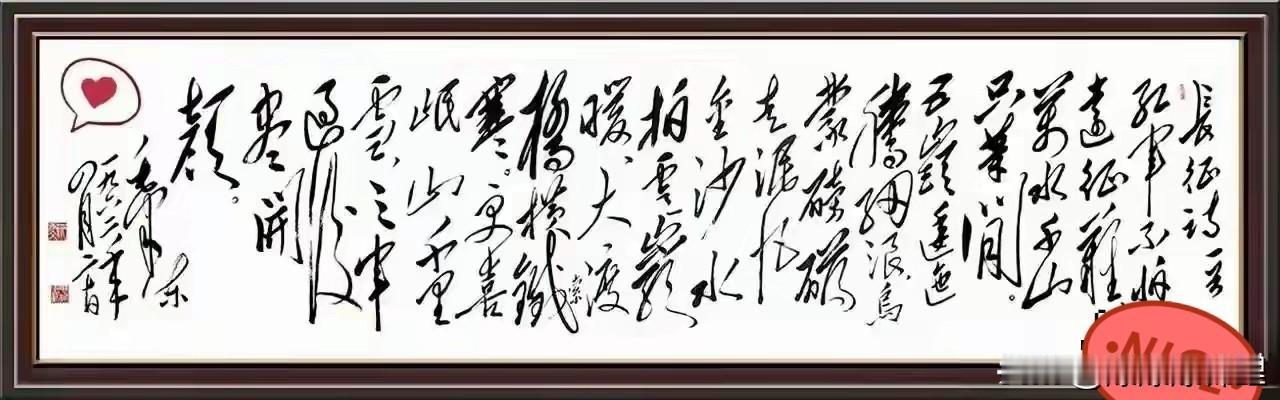 長征詩一首
紅軍不怕
遠征難
萬水千山
只等閒。
五嶺逶迤
騰細浪烏
蒙磅礴
走泥丸
金沙水
拍雲巖
暖、大渡
橋橫鐵索
寒。更喜
岷山千里
雪、三軍
過後
盡開
顏。
毛澤東
一九六二年
四月二十日